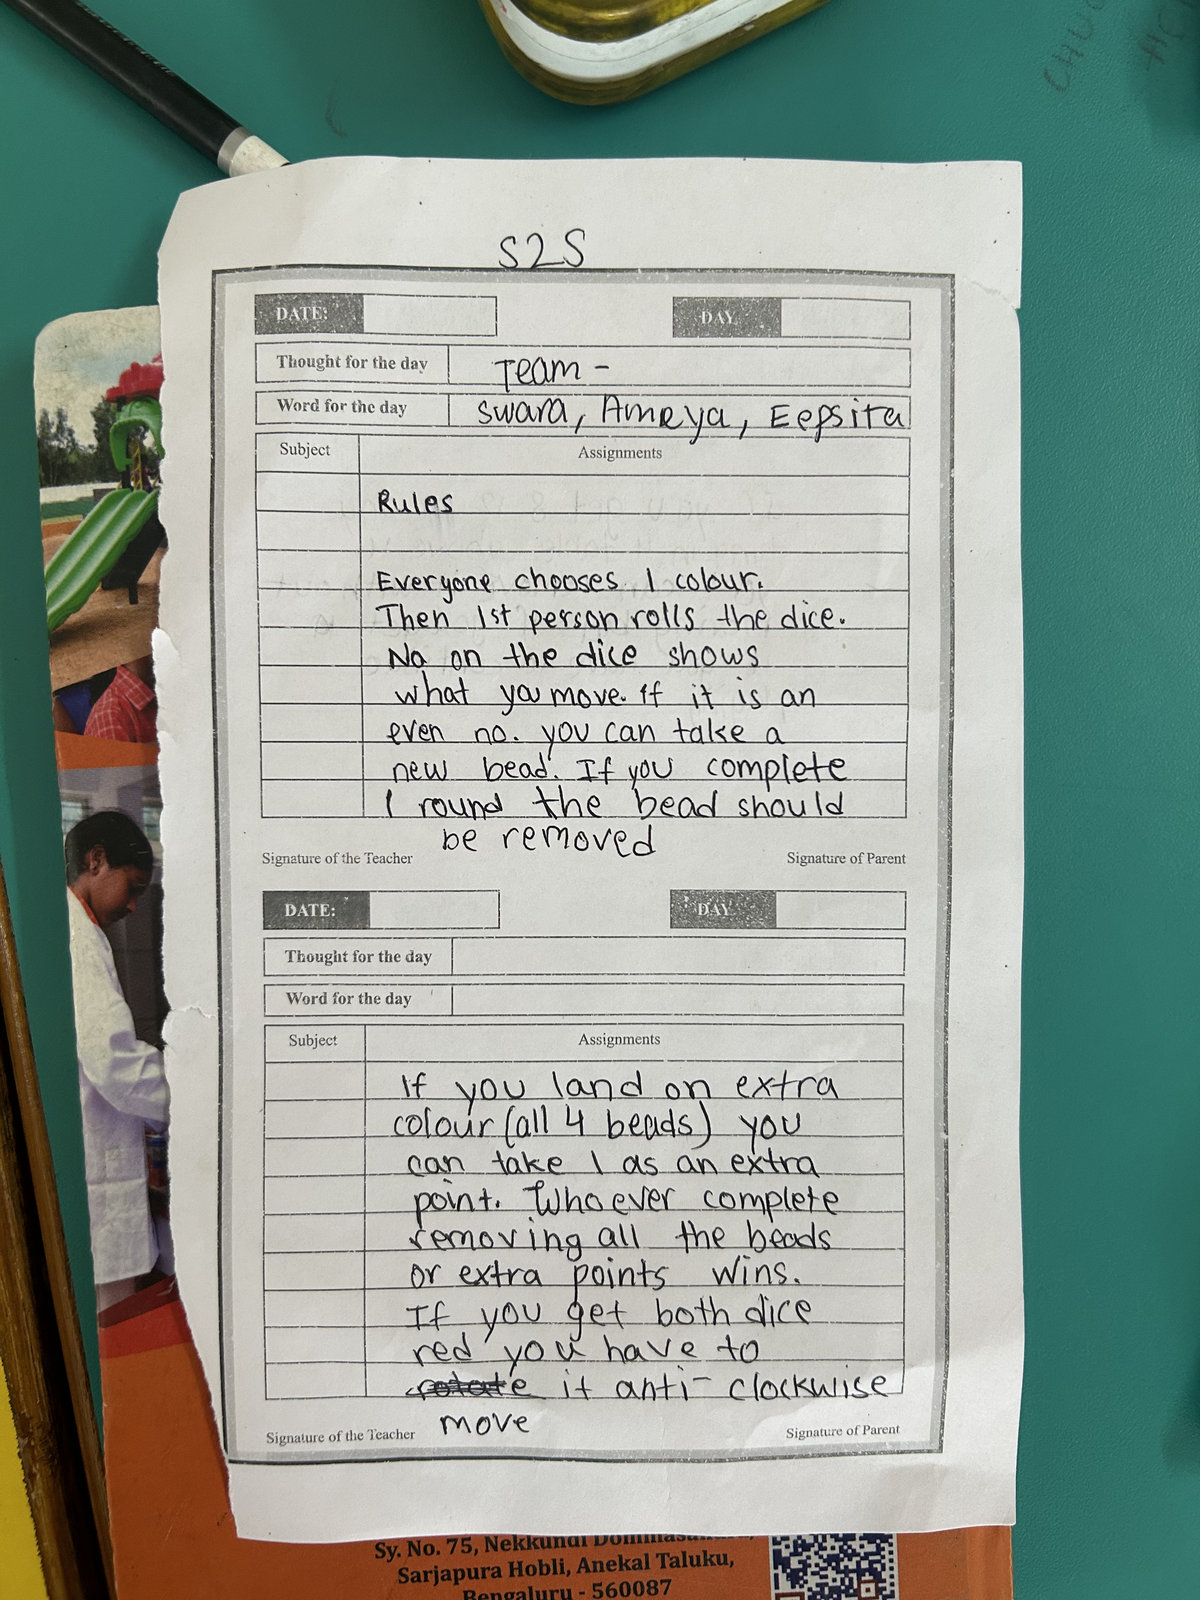 S2S
DATE:
DAY
Thought for the day
Team -
Word for the day
Swara, Ameya, Eepsita
Subject
Assignments
Rules
Everyone chooses 1 colour.
Then 1st person rolls the dice.
No on the dice shows
what you move. If it is an
even no. you can take a
new bead. If you complete
1 round the bead should
be removed
Signature of the Teacher
Signature of Parent
DATE:
DAY
Thought for the day
Word for the day
Subject
Assignments
If you land on extra
colour (all 4 beads) you
can take 1 as an extra
point. Whoever complete
removing all the beads
or extra points wins.
If you get both dice
red you have to
it anti-clockwise
move
Signature of the Teacher
Signature of Parent
Sy. No. 75, Nekkundi
Sarjapura Hobli, Anekal Taluku,
Bengaluru - 560087